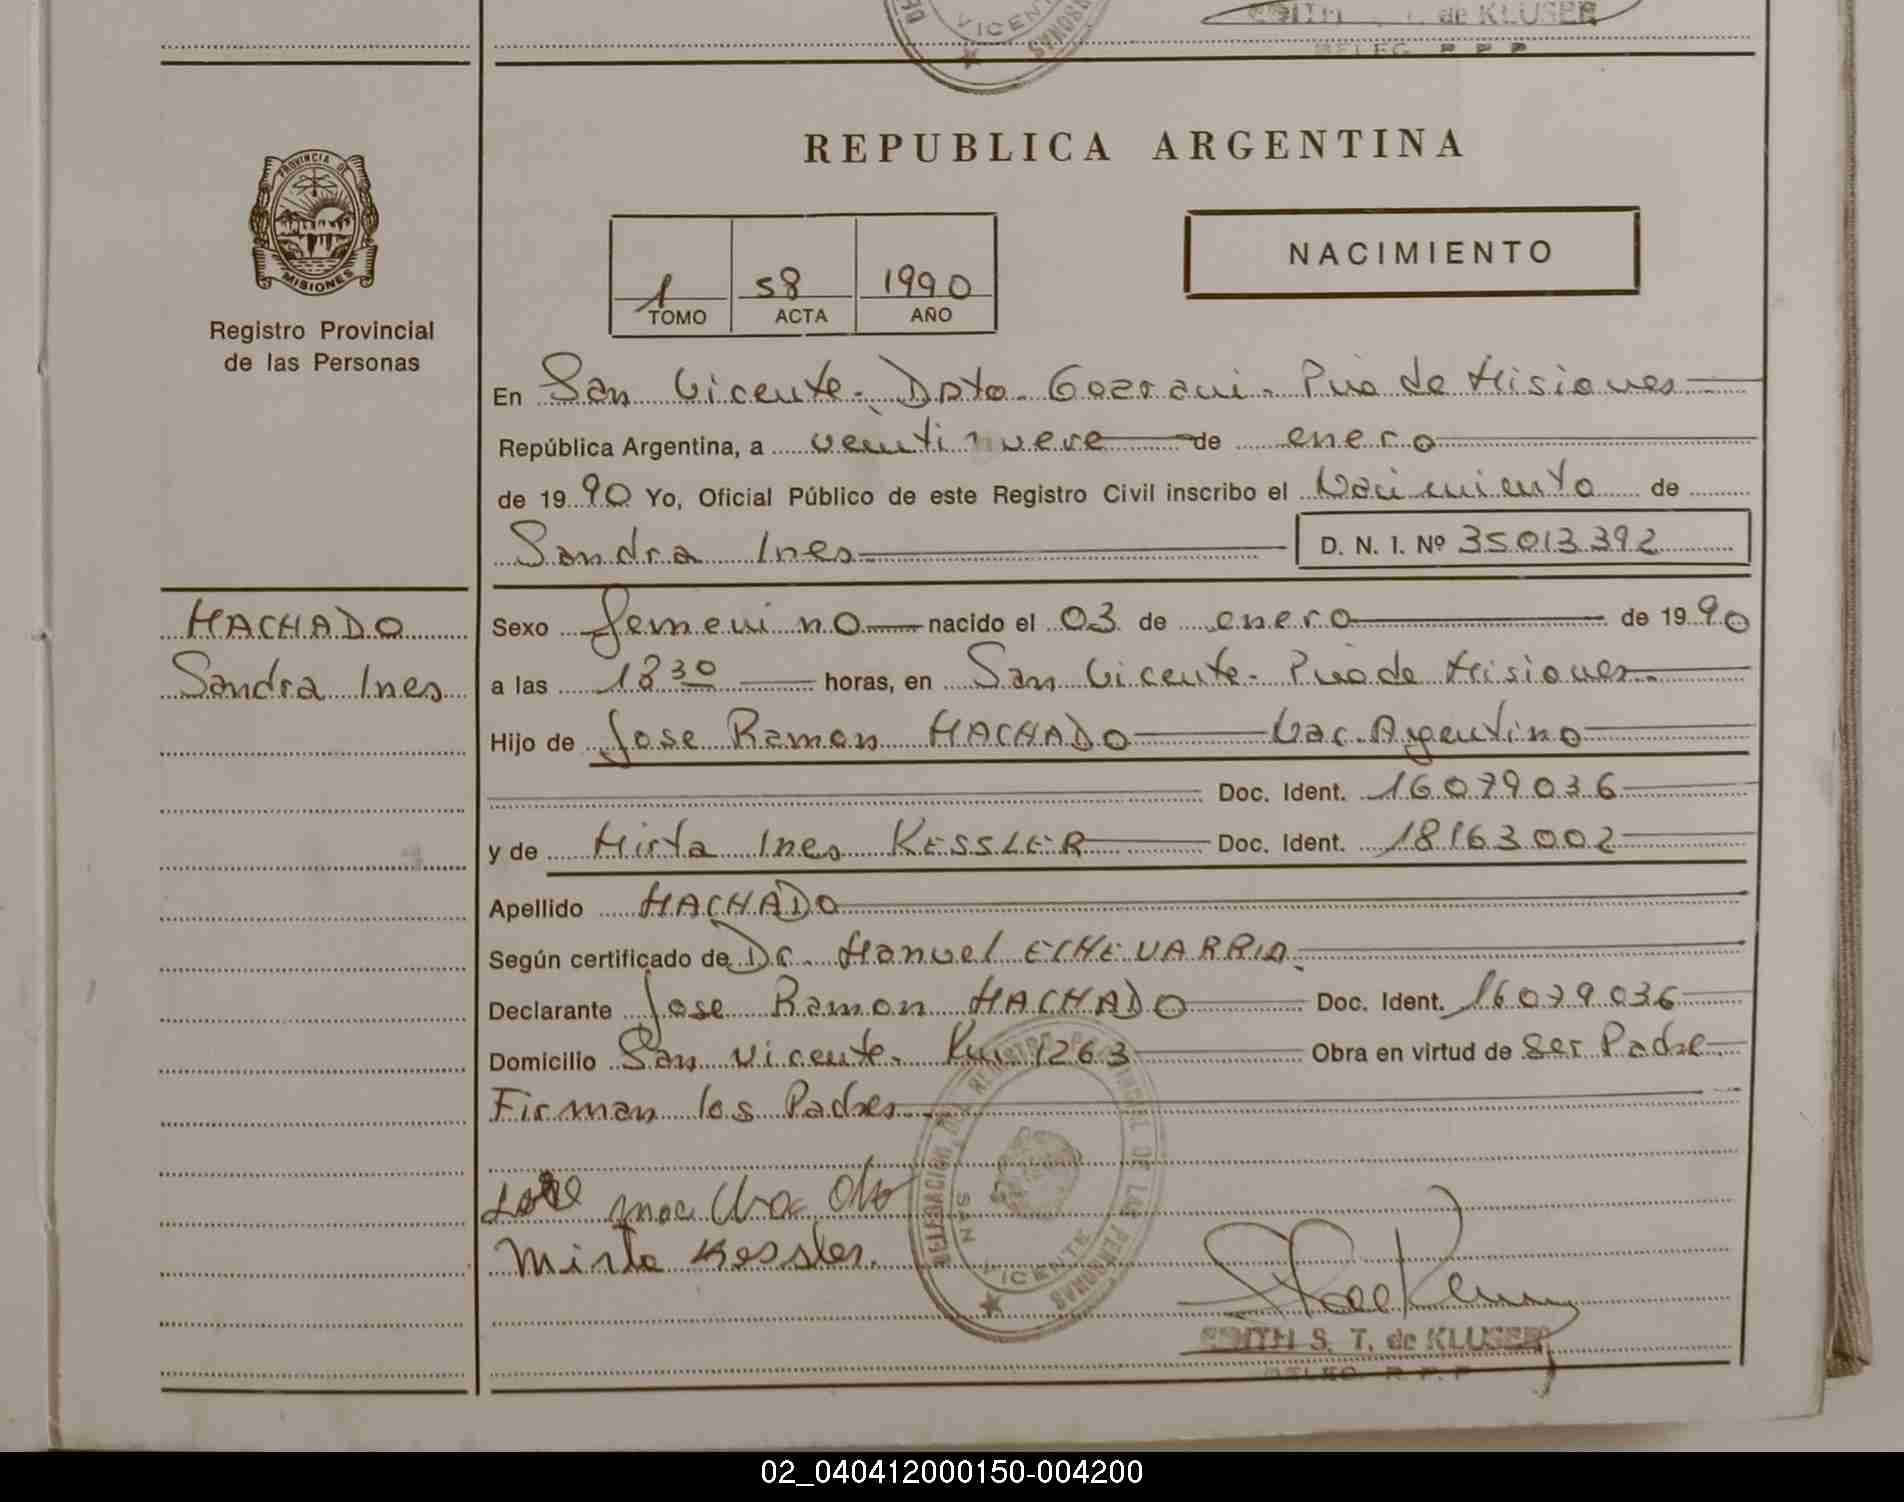 VICENTE
EDITH S. T. de KLUSER
DELEG. R. P. P.
REPUBLICA ARGENTINA
PROVINCIA DE
MISIONES
Registro Provincial
de las Personas
NACIMIENTO
1 58 1990
TOMO ACTA AÑO
En San Vicente. Dpto. Guarani - Pcia de Misiones
República Argentina, a ventinueve de enero
de 1990 Yo, Oficial Público de este Registro Civil inscribo el Nacimiento de
Sandra Ines D. N. I. Nº 35013392
HACHADO
Sandra Ines
Sexo femenino nacido el 03 de enero de 1990
a las 18 30 horas, en San Vicente. Pcia de Misiones
Hijo de Jose Ramon MACHADO Nac. Argentino
Doc. Ident. 16079036
y de Mirta Ines KESSLER Doc. Ident. 18163002
Apellido MACHADO
Según certificado de Dr. Manuel ECHEVARRIA.
Declarante Jose Ramon MACHADO Doc. Ident. 16079036
Domicilio San Vicente. Km 1263 Obra en virtud de ser Padre
Firman los Padres.
Jose machado
Mirta Kessler.
DELEGACION DEL REGISTRO PROVINCIAL DE LAS PERSONAS
SAN VICENTE
EDITH S. T. de KLUSER
DELEG. R. P. P
02_040412000150-004200